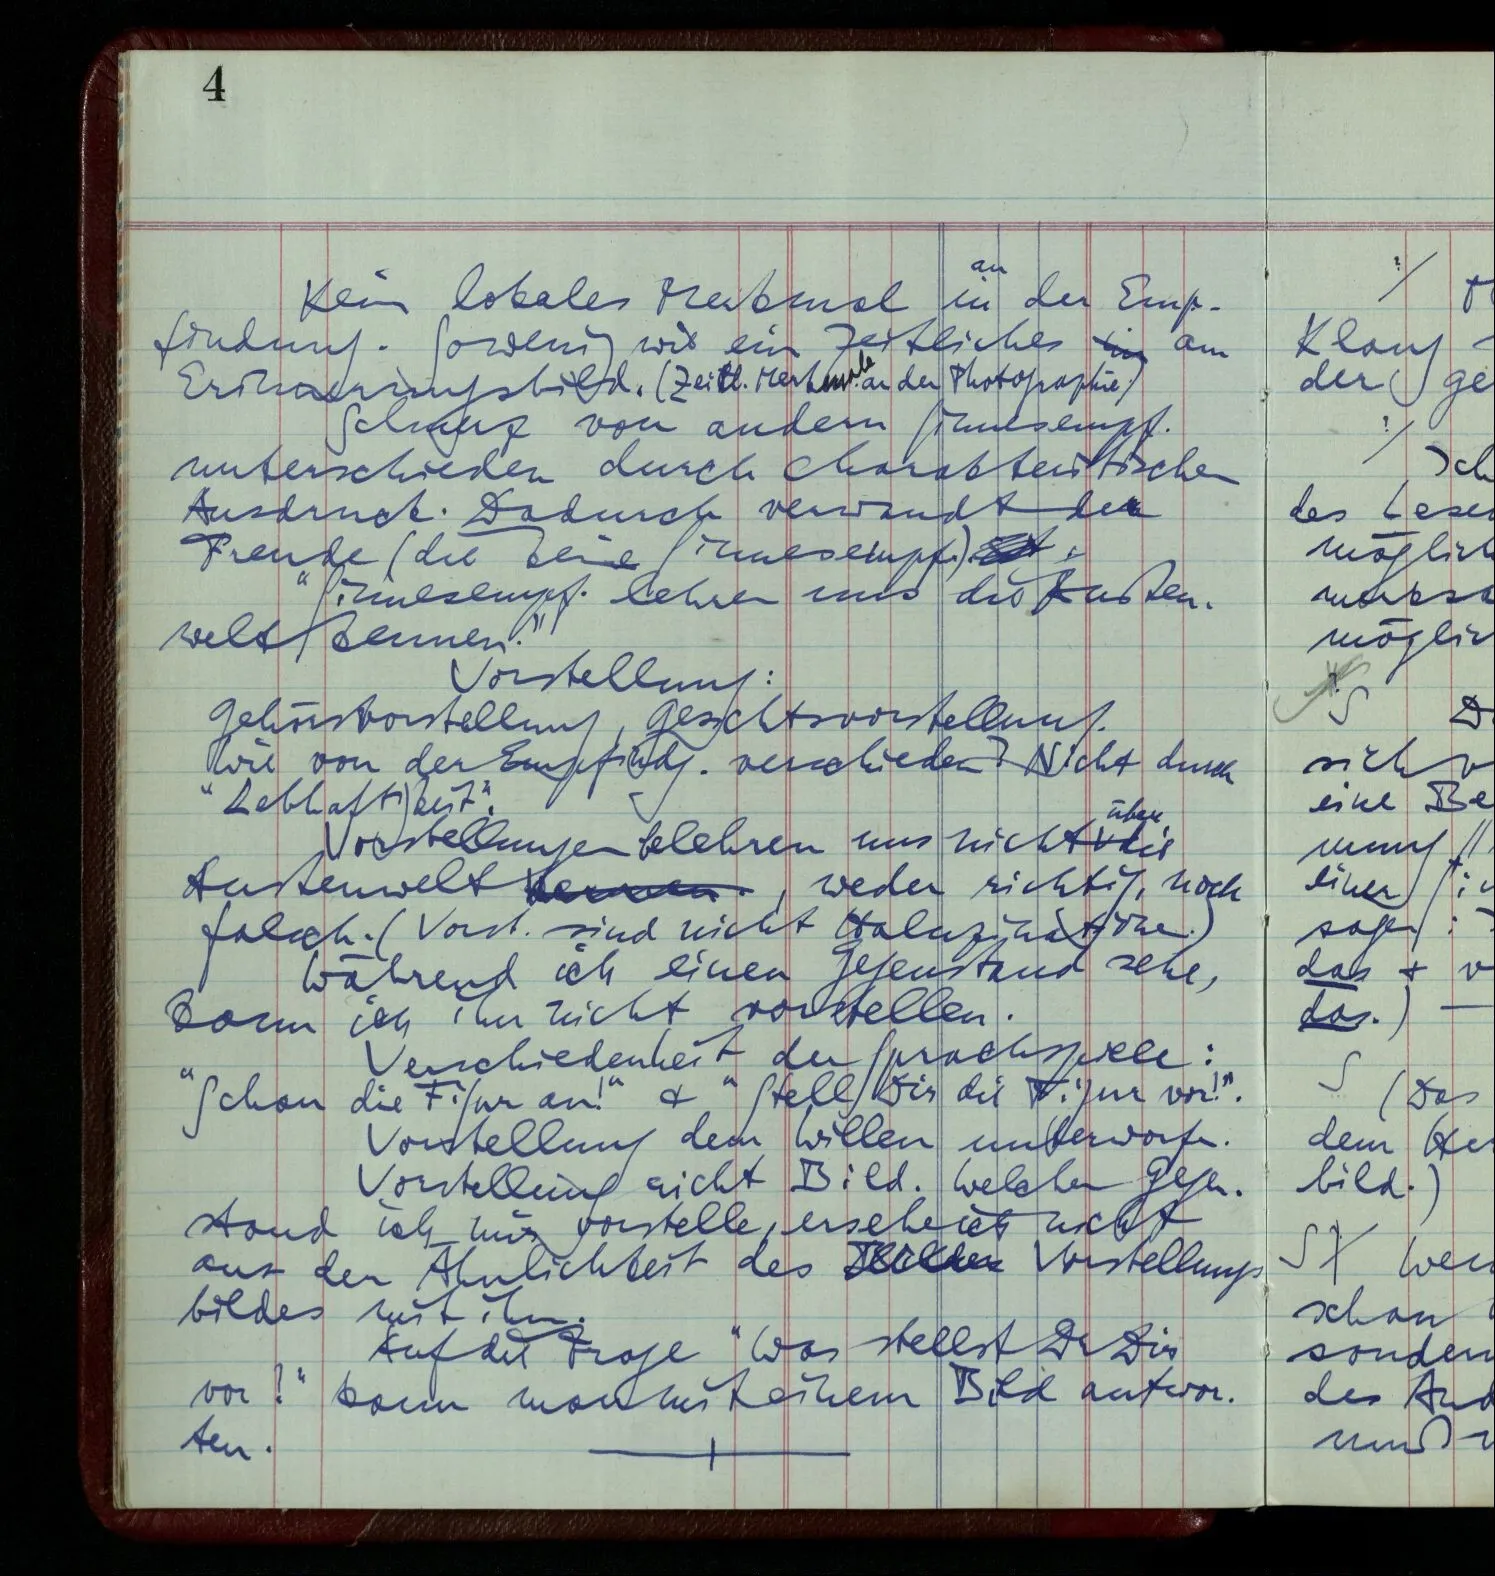 4
an
Kein lokales Merkmal in der Emp-
findung. Sowenig wie ein zeitliches im am
Erinnerungsbild. (Zeitl. Merkmale an der Photographie.)
Schmerz von andern Sinnesempf.
unterschieden durch charakteristischen
Ausdruck. Dadurch verwandt der
Freude (die keine Sinnesempf.)
"Sinnesempf. lehren uns die Außen-
welt kennen."
Vorstellung:
Gehörsvorstellung, Gesichtsvorstellung.
Wie von der Empfindg. verschieden? Nicht durch
"Lebhaftigkeit".
über
Vorstellungen belehren uns nicht die
Außenwelt kennen, weder richtig, noch
falsch. (Vorst. sind nicht Haluzinationen.)
Während ich einen Gegenstand sehe,
kann ich ihn nicht vorstellen.
Verschiedenheit der Sprachspiele:
"Schau die Figur an!" & "Stell Dir die Figur vor!".
Vorstellung dem Willen unterworfen.
Vorstellung nicht Bild. Welchen Gegen-
stand ich mir vorstelle, ersehe ich nicht
aus der Ähnlichkeit des Bildes Vorstellungs
bildes mit ihm.
Auf die Frage "Was stellst Du Dir
vor?" kann man mit einem Bild antwor-
ten.
Klang
der ge
Ich
des Lesen
möglich
möglich
sich v
eine Be
einen
sagen:
das + v
das.) —
(Das
dem
bild.)
schau
sondern
des
muß